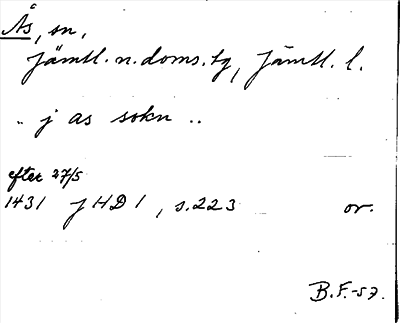 Ås, sn,
Jämtl. n. doms. tg, Jämtl. l.
.. j as sokn ..
efter 27/5
1431 JHD 1, s. 223 or.
B.F.-57.